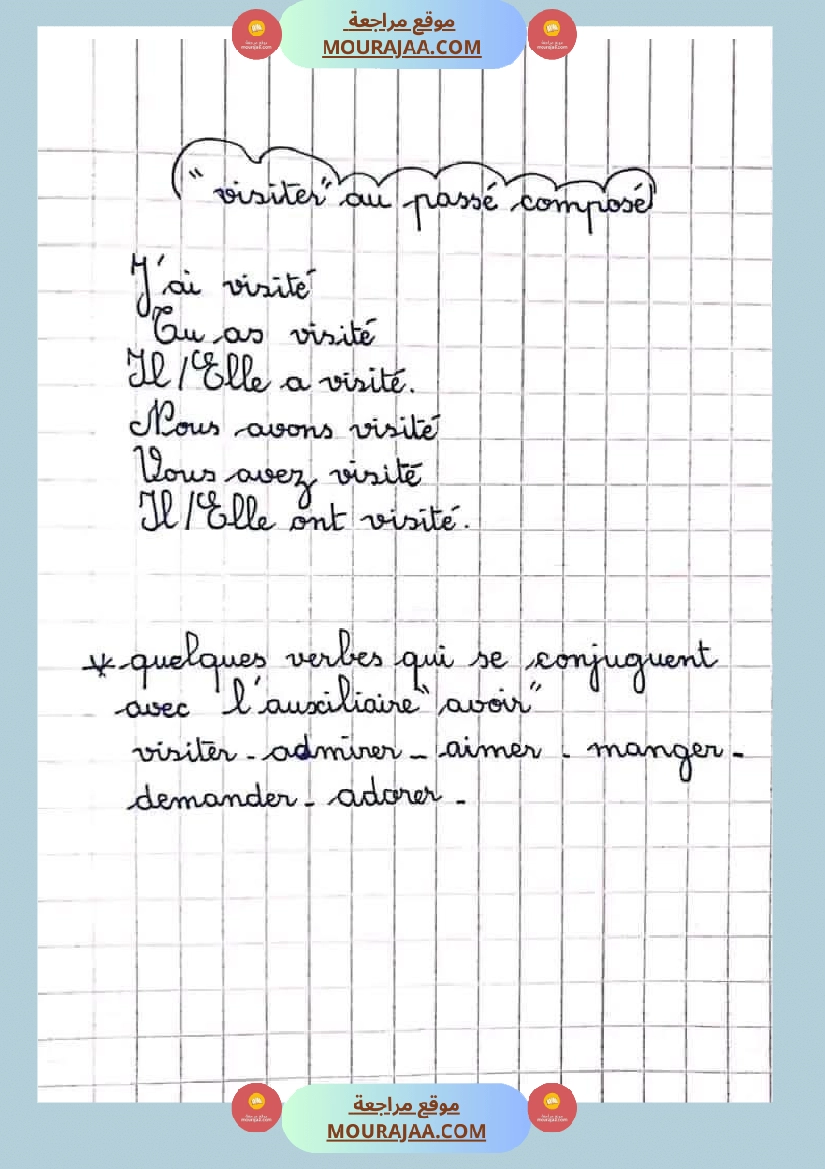 موقع مراجعة
MOURAJAA.COM
"visiter" au passé composé
J'ai visité
Tu as visité
Il/Elle a visité.
Nous avons visité
Vous avez visité
Il/Elle ont visité.
* quelques verbes qui se conjuguent
avec l'auxiliaire "avoir"
visiter - admirer - aimer - manger -
demander - adorer -
موقع مراجعة
MOURAJAA.COM